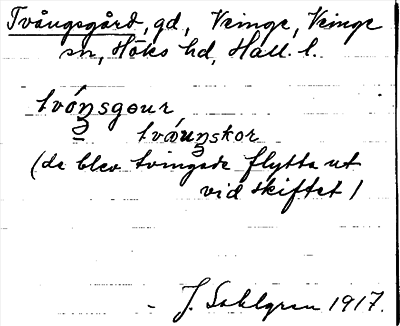 Tvångsgård, gd, Veinge, Veinge
sn, Höks hd, Hall. l.
tvóŋsgɑur
tvǻuŋskɑr
(de blev tvingade flytta ut
vid skiftet)
- J. Sahlgren 1917.